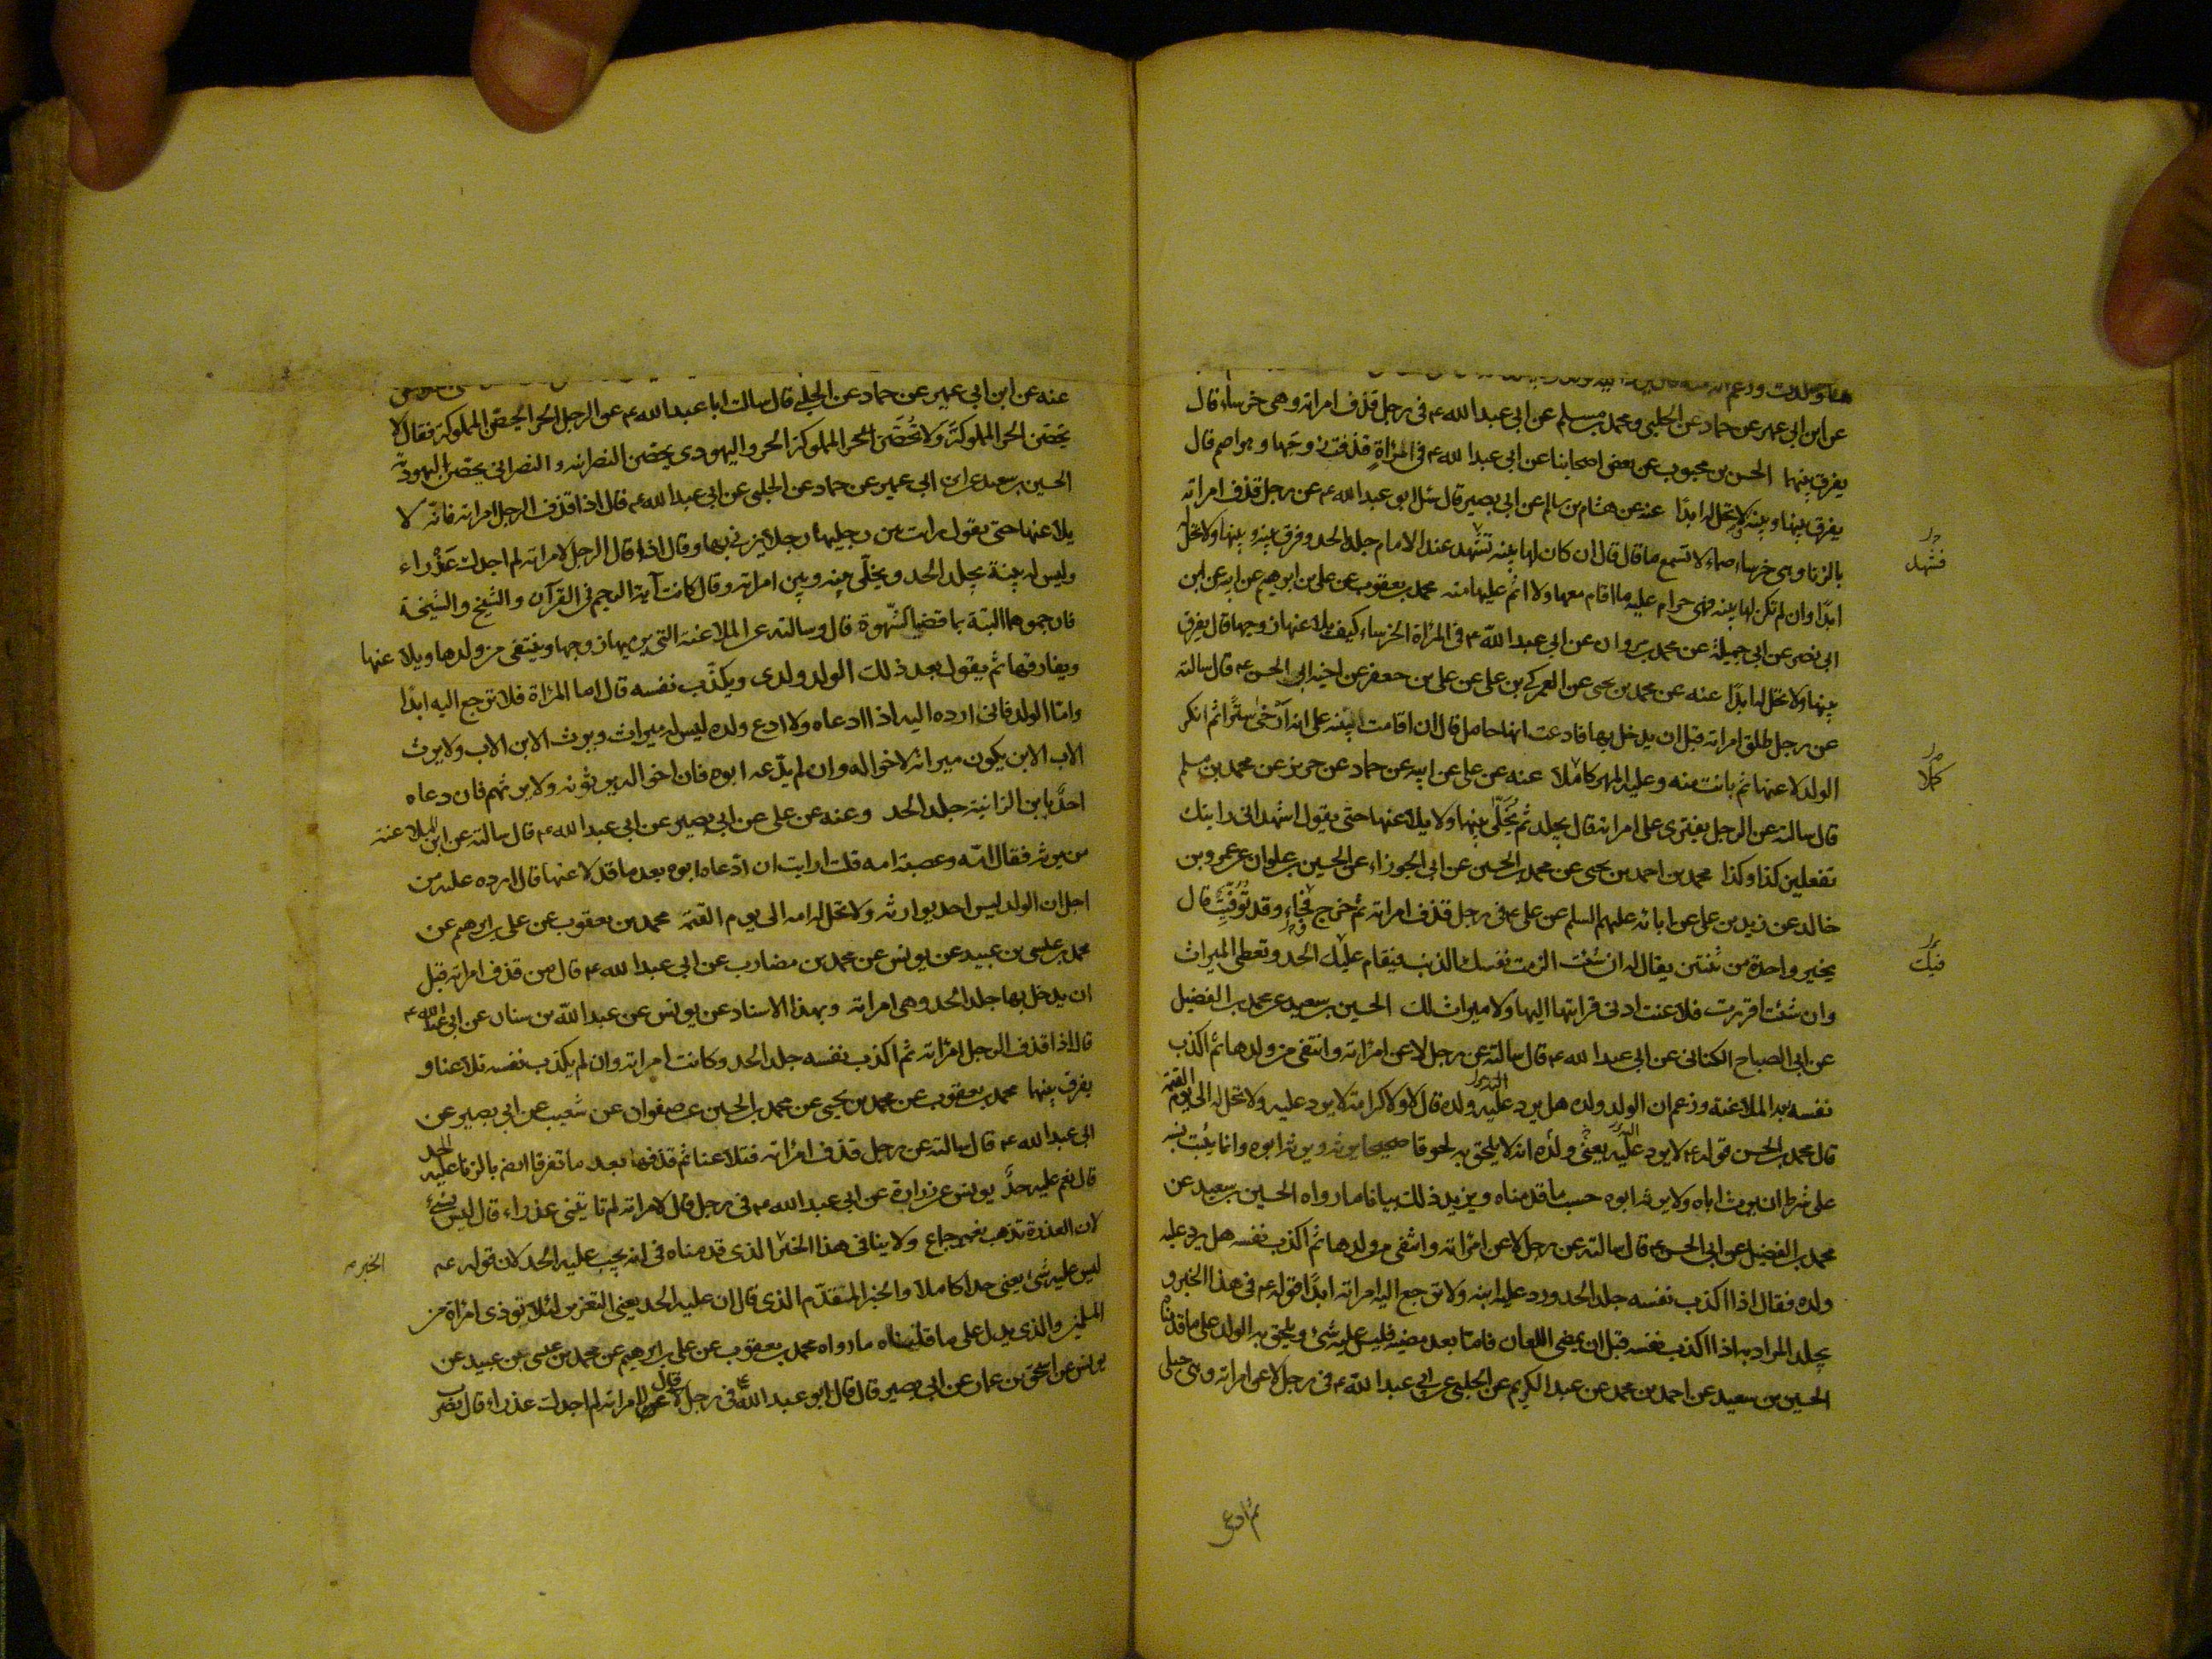 عن ابن ابي عمير عن حماد عن الحلبي ومحمد بن مسلم عن ابي عبد الله ع في رجل قذف امراته وهي خرساء قال
يفرق بينهما الحسن بن محبوب عن بعض اصحابنا عن ابي عبد الله ع في المرأة قذفت زوجها وهو اصم قال
يفرق بينها وبينه ولا تحل له ابدًا عنه عن هشام بن سالم عن ابي بصير قال سئل ابو عبد الله ع عن رجل قذف امراته
بالزنا وهي خرساء صماء لا تسمع ما قال قال ان كان لها بينه تشهد عند الامام جلد الحد وفرق بينه وبينها ولا تحل له
فتشهد
ابدًا وان لم تكن لها بينه فهي حرام عليه ما اقام معها ولا اثم عليها منه محمد بن يعقوب عن علي بن ابرهيم عن ابيه عن ابن
ابي نصر عن ابي جميلة عن محمد بن مروان عن ابي عبد الله ع في المرأة الخرساء كيف يلاعنها زوجها قال يفرق
بينهما ولا تحل له ابدًا عنه عن محمد بن يحيى عن العمركي بن علي عن علي بن جعفر عن اخيه ابي الحسن ع قال سالته
عن رجل طلق امراته قبل ان يدخل بها فادعت انها حامل قال ان اقامت البينه على انه ارخى سترًا ثم انكر
الولد لاعنها ثم بانت منه وعليه المهر كاملا عنه عن علي عن ابيه عن حماد عن حريز عن محمد بن مسلم
كملا
قال سالته عن الرجل يفتري على امراته قال يجلد ثم يُخلّى بينهما ولا يلاعنها حتى يقول اشهد اني رايتك
تفعلين كذا وكذا محمد بن احمد بن يحيى عن محمد بن الحسين عن ابي الجوزاء عن الحسين بن علوان عن عمرو بن
خالد عن زيد بن علي عن ابائه عليهم السلم عن علي ع في رجل قذف امراته ثم خرج فجاء وقد تُوُفّيت قال
يخير واحدة من ثنتين يقال له ان شئت الزمت نفسك الذنب فيقام عليك الحد وتعطى الميراث
فيك
وان شئت اقررت فلاعنت ادنى قرابتها اليها ولا ميراث لك الحسين بن سعيد عن محمد بن الفضيل
عن ابي الصباح الكناني عن ابي عبد الله ع قال سالته عن رجل لاعن امراته وانتفى من ولدها ثم اكذب
نفسه بعد الملاعنة وزعم ان الولد ولده هل يرد عليه ولده قال لا ولا كرامة لا يرد عليه ولا تحل له الى يوم القيمة
قال محمد بن الحسن قوله ع لا يرد عليه يعني ولده انه لا يلحق به لحوقا صحيحا يرثه ويرثه ابوه وانما يثبت نسبه
على شرط ان يرث اباه ولا يرثه ابوه حسب ما قدمناه ويزيد ذلك بيانا ما رواه الحسين بن سعيد عن
محمد بن الفضيل عن ابي الحسن ع قال سالته عن رجل لاعن امراته وانتفى من ولدها ثم اكذب نفسه هل يرد عليه
ولده فقال اذا اكذب نفسه جلد الحد ورد عليه ابنه ولا ترجع اليه امراته ابدًا قوله ع في هذا الخبر و
يجلد المراد به اذا اكذب نفسه قبل ان يمضي اللعان فاما بعد مضيه فليس عليه شئ ويلحق به الولد على ما قدمناه
الحسين بن سعيد عن احمد بن محمد عن عبد الكريم عن الحلبي عن ابي عبد الله ع في رجل لاعن امراته وهي حبلى
ثم ادعى
عنه عن ابن ابي عمير عن حماد عن الحلبي قال سالت ابا عبد الله ع عن الرجل الحر ايحصن المملوكة فقال لا
يحصن الحر المملوكة ولا تُحصَن الحر المملوكة الحر واليهودي يحصن النصرانيه والنصراني يحصن اليهوديّة
الحسين بن سعيد عن ابن ابي عمير عن حماد عن الحلبي عن ابي عبد الله ع قال اذا قذف الرجل امراته فانه لا
يلاعنها حتى يقول رايت بين رجليها رجلا يزني بها وقال اذا قال الرجل لامراته لم اجدك عَذْراء
وليس له بينة يجلد الحد ويخلّى بينه وبين امراته وقال كانت آية الرجم في القرآن والشيخ والشيخة
فارجموهما البتة بما قضيا الشهوة قال وسالته عن الملاعنة التي يرميها زوجها وينتفي من ولدها ويلاعنها
ويفارقها ثم يقول بعد ذلك الولد ولدي ويكذّب نفسه قال اما المرأة فلا ترجع اليه ابدًا
وامّا الولد فاني ارده اليه اذا ادعاه ولا ادع ولده ليس له ميراث ويرث الابن الاب ولا يرث
الاب الابن يكون ميراثه لاخواله وان لم يدّعه ابوه فان اخواله يرثونه ولا يرثهم فان دعاه
احدٌ يا ابن الزانية جلد الحد وعنه عن علي عن ابي بصير عن ابي عبد الله ع قال سالته عن ابن الملاعنة
من يرثه فقال امّه وعصبة امه قلت ارايت ان ادّعاه ابوه بعد ما قد لاعنها قال ارده عليه من
اجل ان الولد ليس احد يوارثه ولا تحل له امه الى يوم القيمة محمد بن يعقوب عن علي بن ابرهيم عن
محمد بن عيسى بن عبيد عن يونس عن محمد بن مضارب عن ابي عبد الله ع قال من قذف امراته قبل
ان يدخل بها جلد الحد وهي امراته وبهذا الاسناد عن يونس عن عبد الله بن سنان عن ابي عبد الله ع
قال اذا قذف الرجل امراته ثم اكذب نفسه جلد الحد وكانت امراته وان لم يكذب نفسه تلاعنا و
يفرق بينهما محمد بن يعقوب عن محمد بن يحيى عن محمد بن الحسين عن صفوان عن شعيب عن ابي بصير عن
ابي عبد الله ع قال سالته عن رجل قذف امراته فتلاعنا ثم قذفها بعد ما تفرقا ايضا بالزنا عليه الحد
قال نعم عليه حدٌّ يونس عن زرارة عن ابي عبد الله ع في رجل قال لامراته لم تاتيني عذراء قال ليس بشئ
لان العذرة تذهب بغير جماع ولا ينافي هذا الخبر الذي قدمناه في انه يجب عليه الحد لان قوله ع
الخبر
ليس عليه شئ يعني حدا كاملا والخبر المتقدّم الذي قال ان عليه الحد يعني التعزير لئلا توذى امرأة من
المسلمين والذي يدل على ما قلناه ما رواه محمد بن يعقوب عن علي بن ابرهيم عن محمد بن عيسى بن عبيد عن
يونس عن اسحق بن عمار عن ابي بصير قال قال ابو عبد الله ع في رجل قال لامراته لم اجدك عذراء قال يضرب